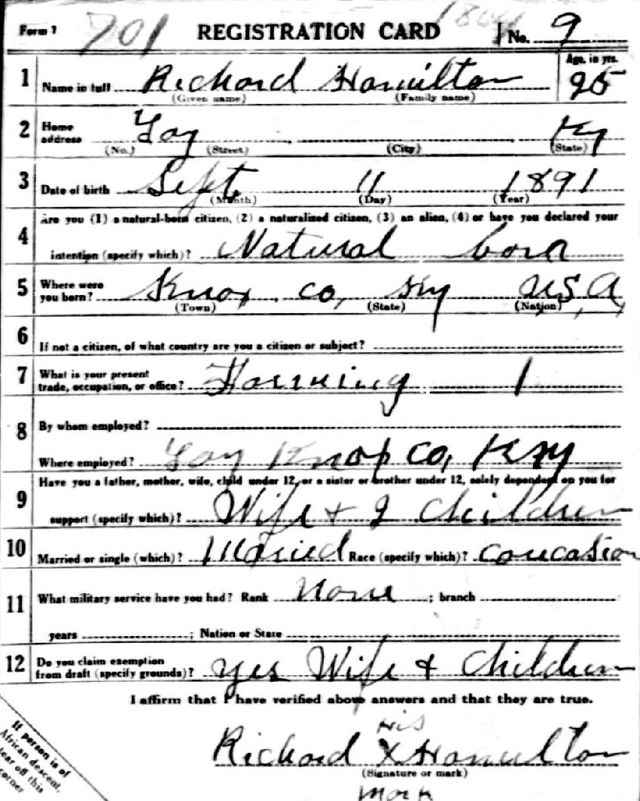 Form 1 701 REGISTRATION CARD No. 9
1 Name in full Richard Hamilton Age, in yrs. 25
(Given name) (Family name)
2 Home address Ky
(No.) (Street) (City) (State)
3 Date of birth Sept 11 1891
(Month) (Day) (Year)
4 Are you (1) a natural-born citizen, (2) a naturalized citizen, (3) an alien, (4) or have you declared your
intention (specify which)? Natural born
5 Where were you born? Knox co, Ky U.S.A.
(Town) (State) (Nation)
6 If not a citizen, of what country are you a citizen or subject?
7 What is your present trade, occupation, or office? Farming 1
8 By whom employed?
Where employed? Knox co, Ky
9 Have you a father, mother, wife, child under 12, or a sister or brother under 12, solely dependent on you for
support (specify which)? Wife + Children
10 Married or single (which)? Married Race (specify which)? Caucasian
11 What military service have you had? Rank None ; branch
years ; Nation or State
12 Do you claim exemption from draft (specify grounds)? yes Wife + Children
I affirm that I have verified above answers and that they are true.
His
Richard X Hamilton
(Signature or mark)
Mark
If person is of
African descent,
tear off this
corner